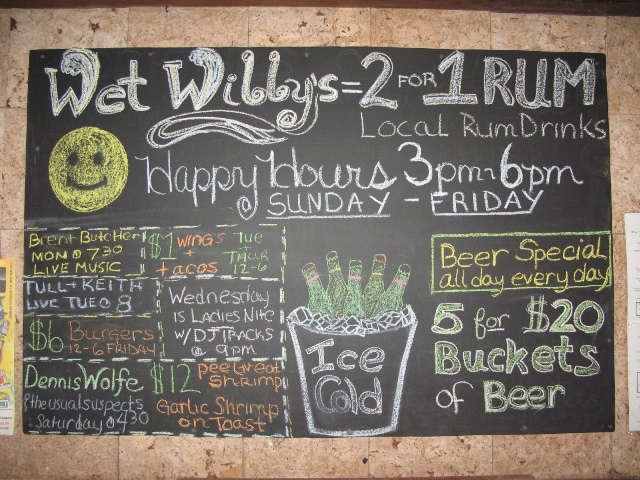 Wet Willy's = 2 FOR 1 RUM
Local Rum Drinks
Happy Hours 3pm-6pm
SUNDAY - FRIDAY
Brent Butcher
MON @ 7:30
LIVE MUSIC
$1 WINGS
+
tacos
Tue
THUR
12-6
TULL + KEITH
LIVE TUE @ 8
$6 Burgers
12-6 FRIDAY
Wednesday
is Ladies Nite
w/ DJ TRACKS
@ 9pm
Dennis Wolfe
& the usual suspects
Saturday @ 4:30
$12 peel & eat
Shrimp
Garlic Shrimp
on Toast
Ice
Cold
Beer Special
all day every day
5 for $20
Buckets
of Beer